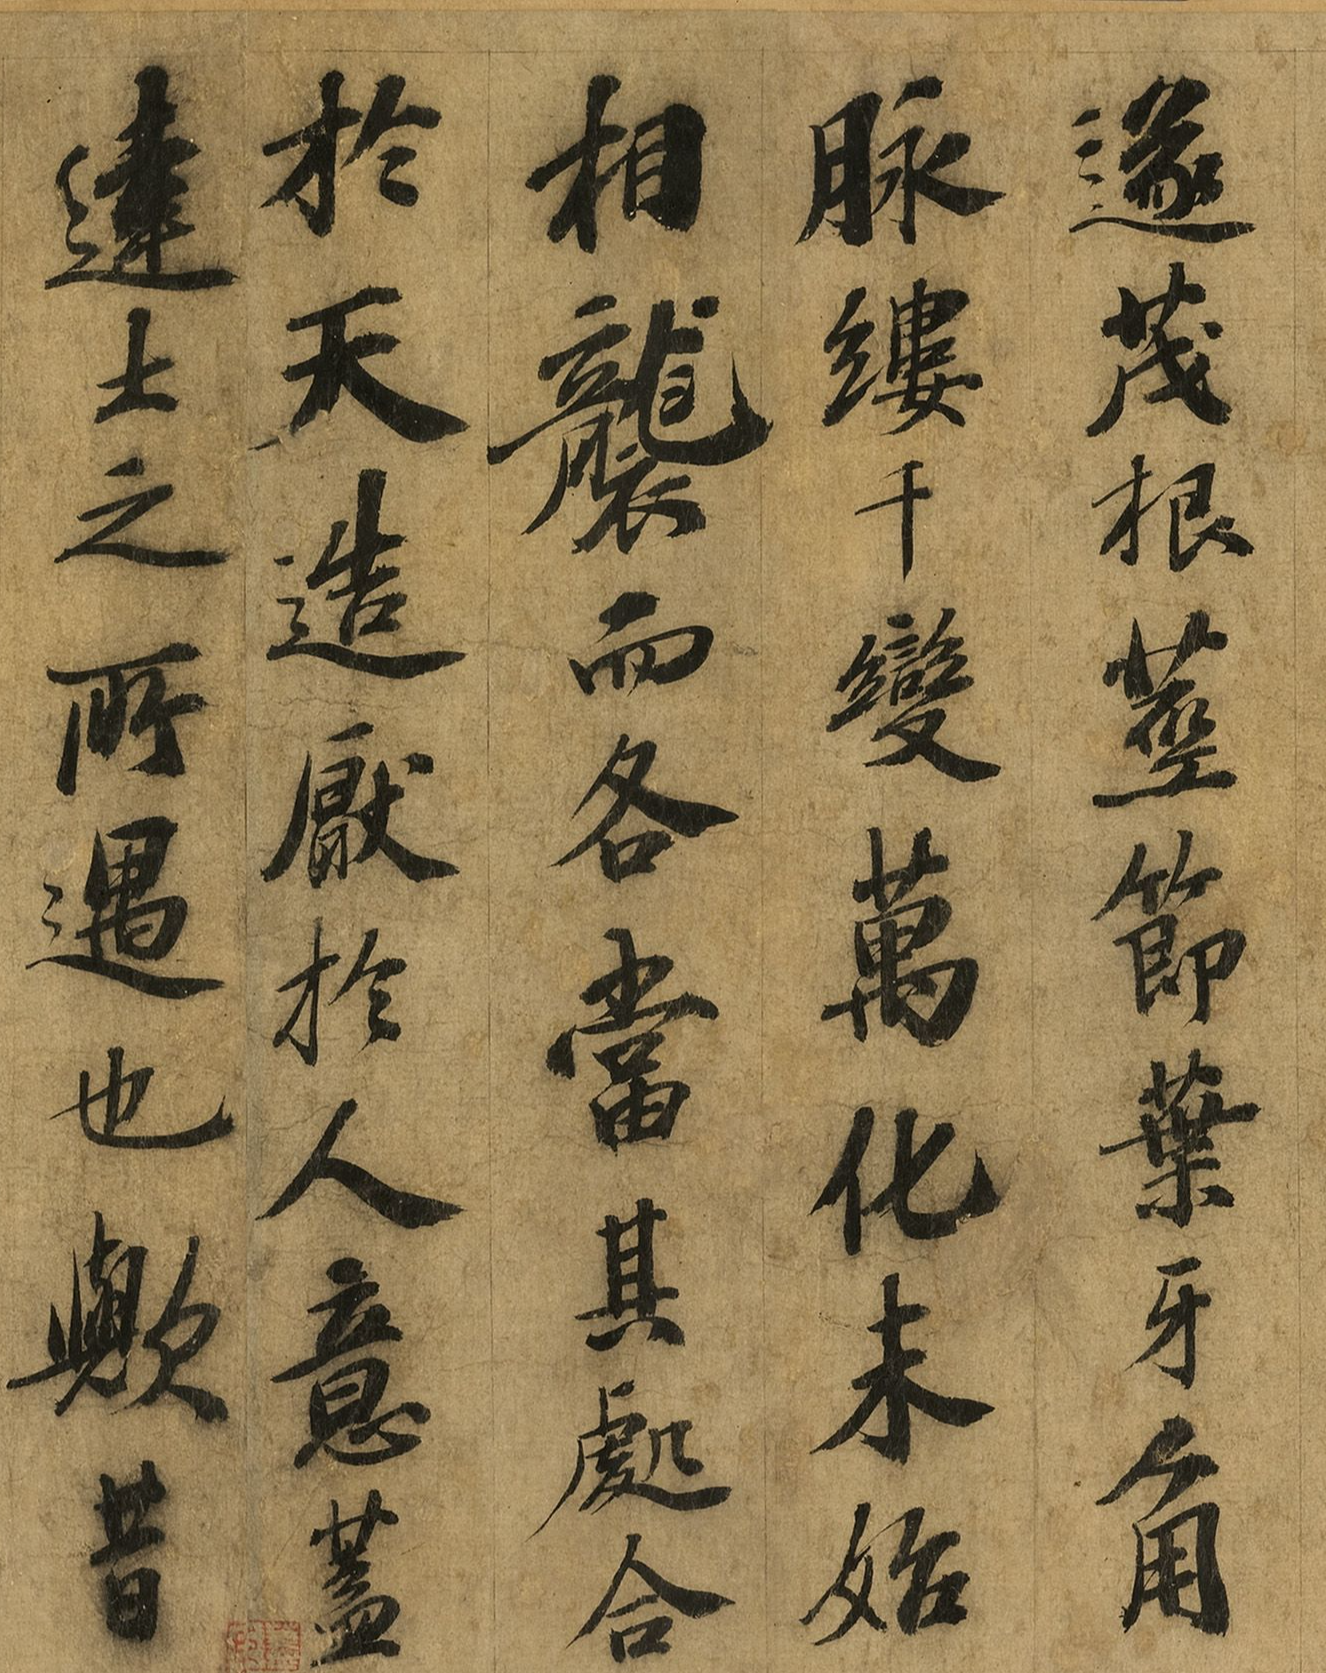 遂茂根莖節葉牙角
脉縷千變萬化未始
相襲而各當其處合
於天造厭於人意蓋
達士之所遇也歟昔